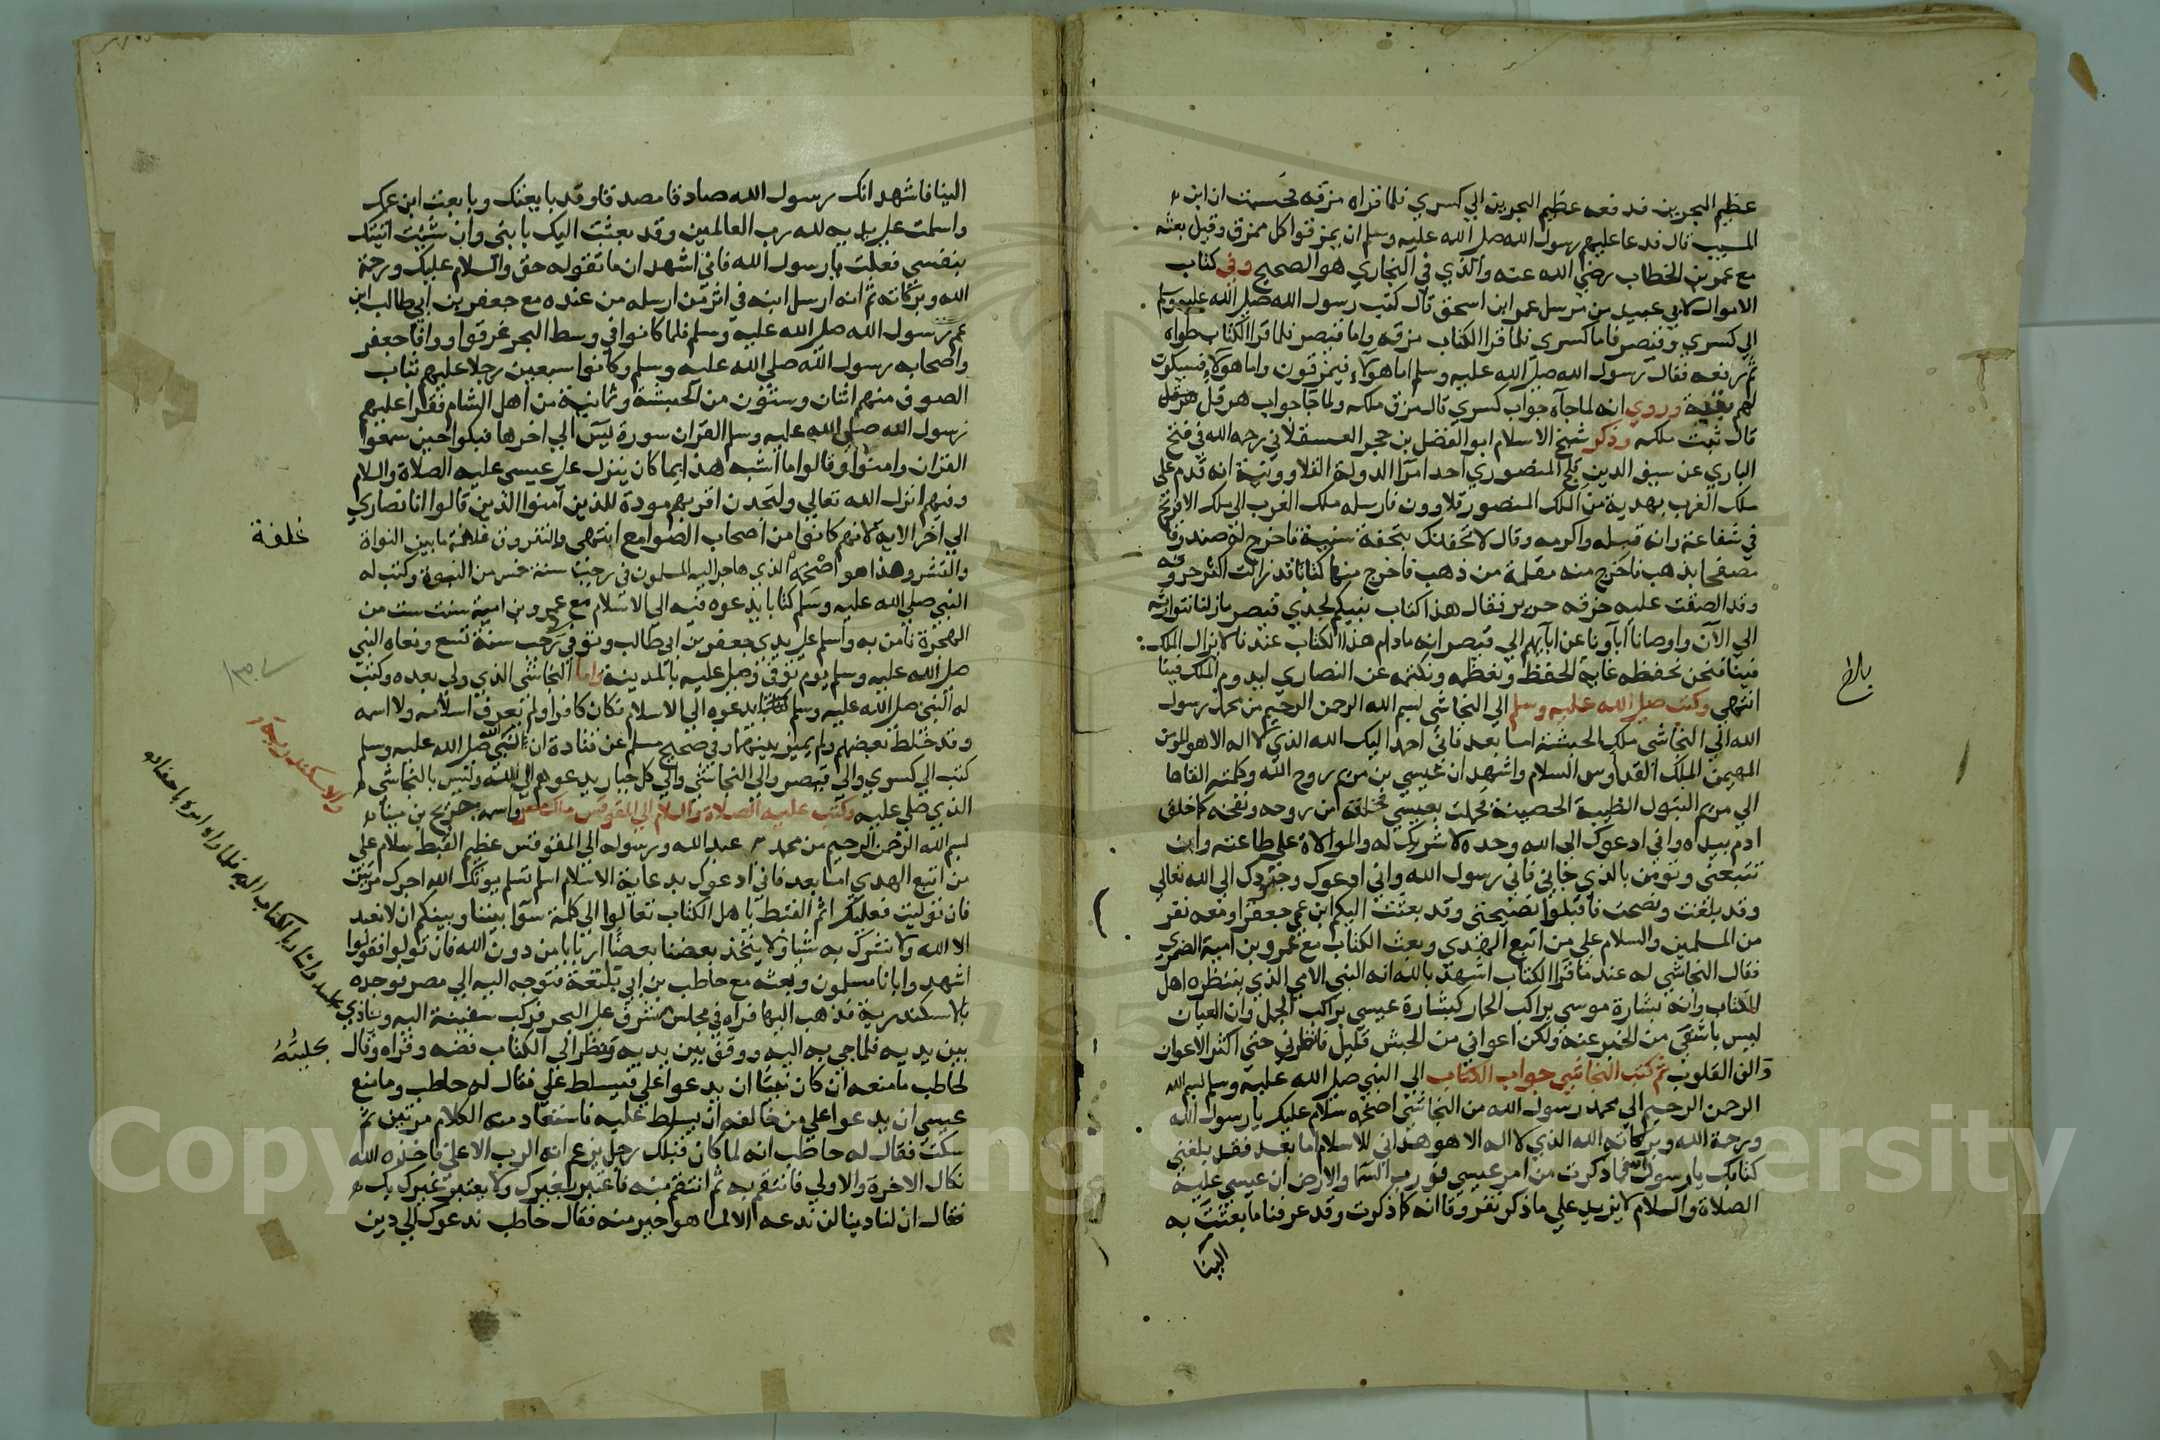 عظيم البحرين فدفعه عظيم البحرين الي كسري فلما قراه مزقه فحسبت ان ابن
المسيب قال فدعا عليهم رسول الله صلى الله عليه وسلم ان يمزقوا كل ممزق وقيل بعثه
مع عمر بن الخطاب رضي الله عنه والذي في البخاري هو الصحيح وفي كتاب
الاموال لابي عبيد من مرسل عمير ابن اسحق قال كتب رسول الله صلى الله عليه وسلم
الي كسري وقيصر فاما كسري فلما قرا الكتاب مزقه واما قيصر فلما قرا الكتاب طواه
ثم رفعه فقال رسول الله صلى الله عليه وسلم اما هولاء فيمزقون واما هولاء فسيكون
لهم بقية وروي انه لما جاه جواب كسري قال مزق ملكه ولما جا جواب هرقل
قال ثبت ملكه وذكر شيخ الاسلام ابو الفضل بن حجر العسقلاني رحمه الله في فتح
الباري عن سيف الدين قلج المنصوري احد امرا الدولة القلاوونية انه قدم على
ملك الغرب بهدية من الملك المنصور قلاوون فارسله ملك الغرب الى ملك الافرنج
في شفاعة وانه قبله واكرمه وقال لاتحفنك بتحفة سنية فاخرج له صندوقا
مصفحا بذهب فاخرج منه مقلمة من ذهب فاخرج منها كتابا قد زالت اكثر حروفه
وقد الصقت عليه خرقه حرير فقال هذا كتاب نبيكم لجدي قيصر ما زلنا نتوارثه
الي الآن واوصانا آباونا عن ابآيهم الي قيصر انه مادام هذا الكتاب عندنا لا يزال الملك
فينا فنحن نحفظه غاية الحفظ ونعظمه ونكتمه عن النصاري ليدوم الملك فينا
انتهي وكتب صلى الله عليه وسلم الي النجاشي بسم الله الرحمن الرحيم من محمد رسول
الله الي النجاشي ملك الحبشة اما بعد فاني احمد اليك الله الذي لا اله الا هو المومن
المهيمن الملك القدوس السلام واشهد ان عيسي بن مريم روح الله وكلمته القاها
الي مريم البتول الطيبة الحصينة فحملت بعيسي فخلقه من روحه ونفخه كما خلق
ادم بيده واني ادعوك الى الله وحده لا شريك له والموالاة علي طاعته وان
تتبعني وتومن بالذي جاني فاني رسول الله واني ادعوك وجنودك الي الله تعالي
وقد بلغت ونصحت فاقبلوا نصيحتي وقد بعثت اليكم ابن عمي جعفرا ومعه نفر
من المسلمين والسلام على من اتبع الهدي وبعث الكتاب مع عمرو بن امية الضمري
فقال النجاشي له عند ما قرا الكتاب اشهد بالله انه النبي الامي الذي ينتظره اهل
الكتاب وانه بشارة موسي براكب الحمار كبشارة عيسي براكب الجمل وان العيان
ليس باشفى من الخبر عنه ولكن اعواني من الحبش قليل فانظرني حتي اكثر الاعوان
والف القلوب ثم كتب النجاشي جواب الكتاب الي النبي صلى الله عليه وسلم بسم الله
الرحمن الرحيم الي محمد رسول الله من النجاشي اصخمه سلام عليك يا رسول الله
ورحمة الله وبركاته الله الذي لا اله الا هو هداني للاسلام اما بعد فقد بلغني
كتابك يا رسول الله فما ذكرت من امر عيسي فو رب السما والارض ان عيسي عليه
الصلاة والسلام لا يزيد علي ما ذكر ثفروقا انه كما ذكرت وقد عرفنا ما بعثت به
الينا
بلاغ
الينا فاشهد انك رسول الله صادقا مصدقا وقد بايعتك وبايعت ابن عمك
واسلمت على يديه لله رب العالمين وقد بعثت اليك بابني وان شئت اتيتك
بنفسي فعلت يا رسول الله فاني اشهد ان ما تقوله حق والسلام عليك ورحمة
الله وبركاته ثم انه ارسل ابنه في اثر من ارسله من عنده مع جعفر بن ابي طالب ابن
عم رسول الله صلى الله عليه وسلم فلما كانوا في وسط البحر غرقوا ووافا جعفر
واصحابه رسول الله صلى الله عليه وسلم وكانوا سبعين رجلا عليهم ثياب
الصوف منهم اثنان وستون من الحبشة وثمانية من اهل الشام فقرا عليهم
رسول الله صلى الله عليه وسلم القران سورة يس الي اخرها فبكوا حين سمعوا
القران وامنوا وقالوا ما اشبه هذا بما كان ينزل على عيسى عليه الصلاة والسلام
وفيهم انزل الله تعالي ولتجدن اقربهم مودة للذين آمنوا الذين قالوا انا نصاري
الي اخر الاية لانهم كانوا من اصحاب الصوامع انتهي والثفروق علاقة ما بين النواة
والقشر وهذا هو اصخمه الذي هاجر اليه المسلمون في رجب سنة خمس من النبوة وكتب له
النبي صلى الله عليه وسلم كتابا يدعوه فيه الي الاسلام مع عمرو بن امية سنة ست من
الهجرة فامن به واسلم على يدي جعفر بن ابي طالب وتوفي في رجب سنة تسع ونعاه النبي
صلى الله عليه وسلم يوم توفي وصلى عليه بالمدينة واما النجاشي الذي ولي بعده وكتب
له النبي صلى الله عليه وسلم كتابا يدعوه الي الاسلام فكان كافرا ولم يعرف اسلامه ولا اسمه
وقد خلط بعضهم ولم يميز بينهما وفي صحيح مسلم عن قتادة ان النبي صلى الله عليه وسلم
كتب الي كسري والي قيصر والي النجاشي والي كل جبار يدعوهم الى الله وليس بالنجاشي
الذي صلى عليه وكتب عليه الصلاة والسلام الي المقوقس ملك مصر واسمه جريج بن مينا
بسم الله الرحمن الرحيم من محمد عبد الله ورسوله الى المقوقس عظيم القبط سلام على
من اتبع الهدي اما بعد فاني ادعوك بدعاية الاسلام اسلم تسلم يوتك الله اجرك مرتين
فان توليت فعليك اثم القبط يا اهل الكتاب تعالوا الي كلمة سوا بيننا وبينكم ان لا نعبد
الا الله ولا نشرك به شيا ولا يتخذ بعضنا بعضا اربابا من دون الله فان تولوا فقولوا
اشهدوا بانا مسلمون وبعثه مع حاطب بن ابي بلتعة فتوجه اليه الي مصر فوجده
بالاسكندرية فذهب اليها فراه في مجلس مشرف على البحر فركب سفينة اليه وحاذي
بين يديه فلما جي به اليه ووقف بين يديه ونظر الي الكتاب فضه وقراه وقال
لحاطب ما منعه ان كان نبيا ان يدعوا علي فيسلط علي فقال له حاطب وما منع
عيسي ان يدعوا علي من خالفه ان يسلط عليه فاستعاد منه الكلام مرتين ثم
سكت فقال له حاطب انه لما كان قبلك رجل يزعم انه الرب الاعلي فاخذه الله
نكال الاخرة والاولي فانتقم به ثم انتقم منه فاعتبر بغيرك ولا يعتبر غيرك بك
فقال ان لنا دينا لن ندعه الا لما هو خير منه فقال حاطب ندعوك الي دين
علاقة
والاسكندرية
مجلسه واشار بالكتاب اليه فلما راه امره باحضاره
Copy
ersity